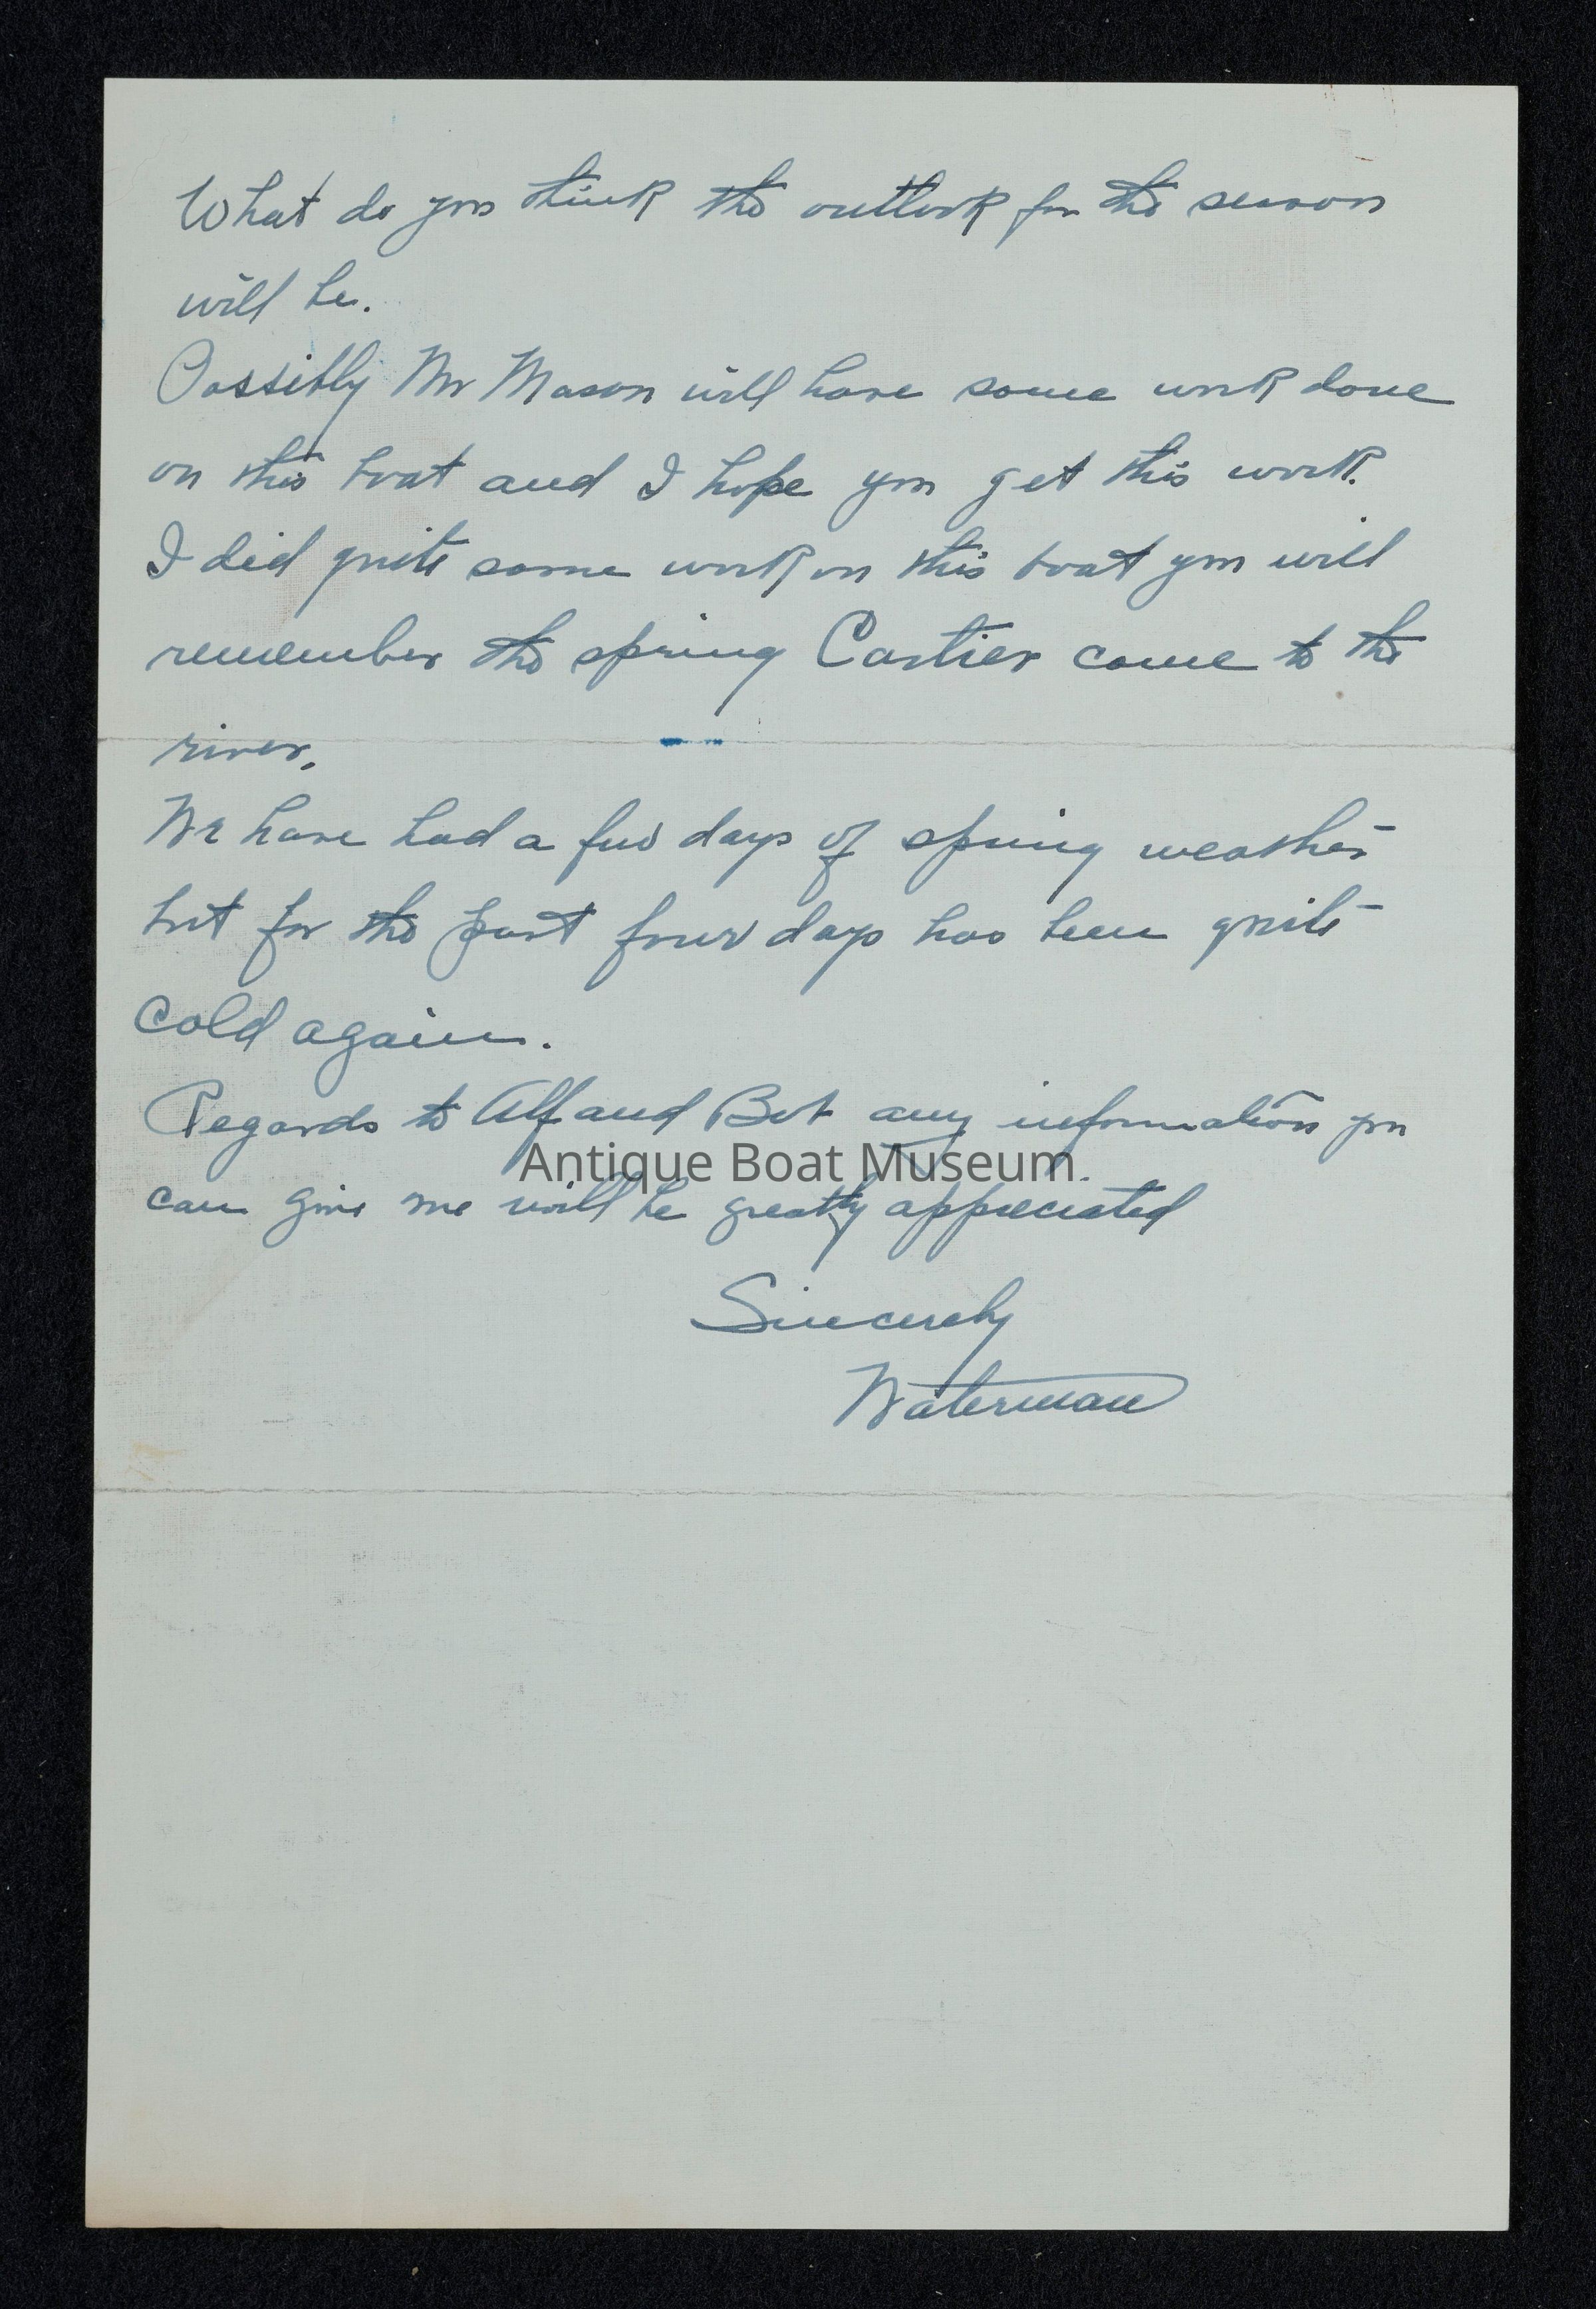 What do you think the outlook for the season
will be.
Possibly Mr Mason will have some work done
on this boat and I hope you get this work.
I did quite some work on this boat you will
remember the spring Cartier come to the
river.
We have had a few days of spring weather
but for the past four days has been quite
cold again.
Regards to Alf and Bert any information you
Antique Boat Museum
can give me will be greatly appreciated
Sincerely
Waterman